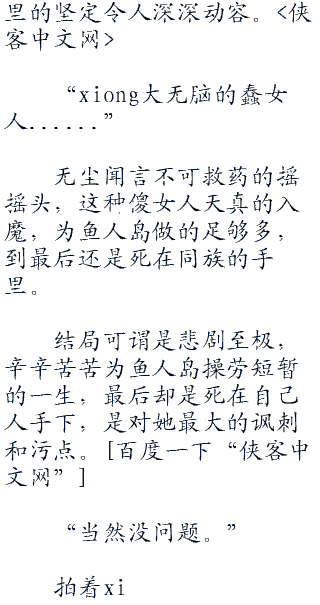 里的坚定令人深深动容。<侠
客中文网>
“xiong大无脑的蠢女
人......”
无尘闻言不可救药的摇
摇头，这种傻女人天真的入
魔，为鱼人岛做的足够多，
到最后还是死在同族的手
里。
结局可谓是悲剧至极，
辛辛苦苦为鱼人岛操劳短暂
的一生，最后却是死在自己
人手下，是对她最大的讽刺
和污点。[百度一下“侠客中
文网”]
“当然没问题。”
拍着xi